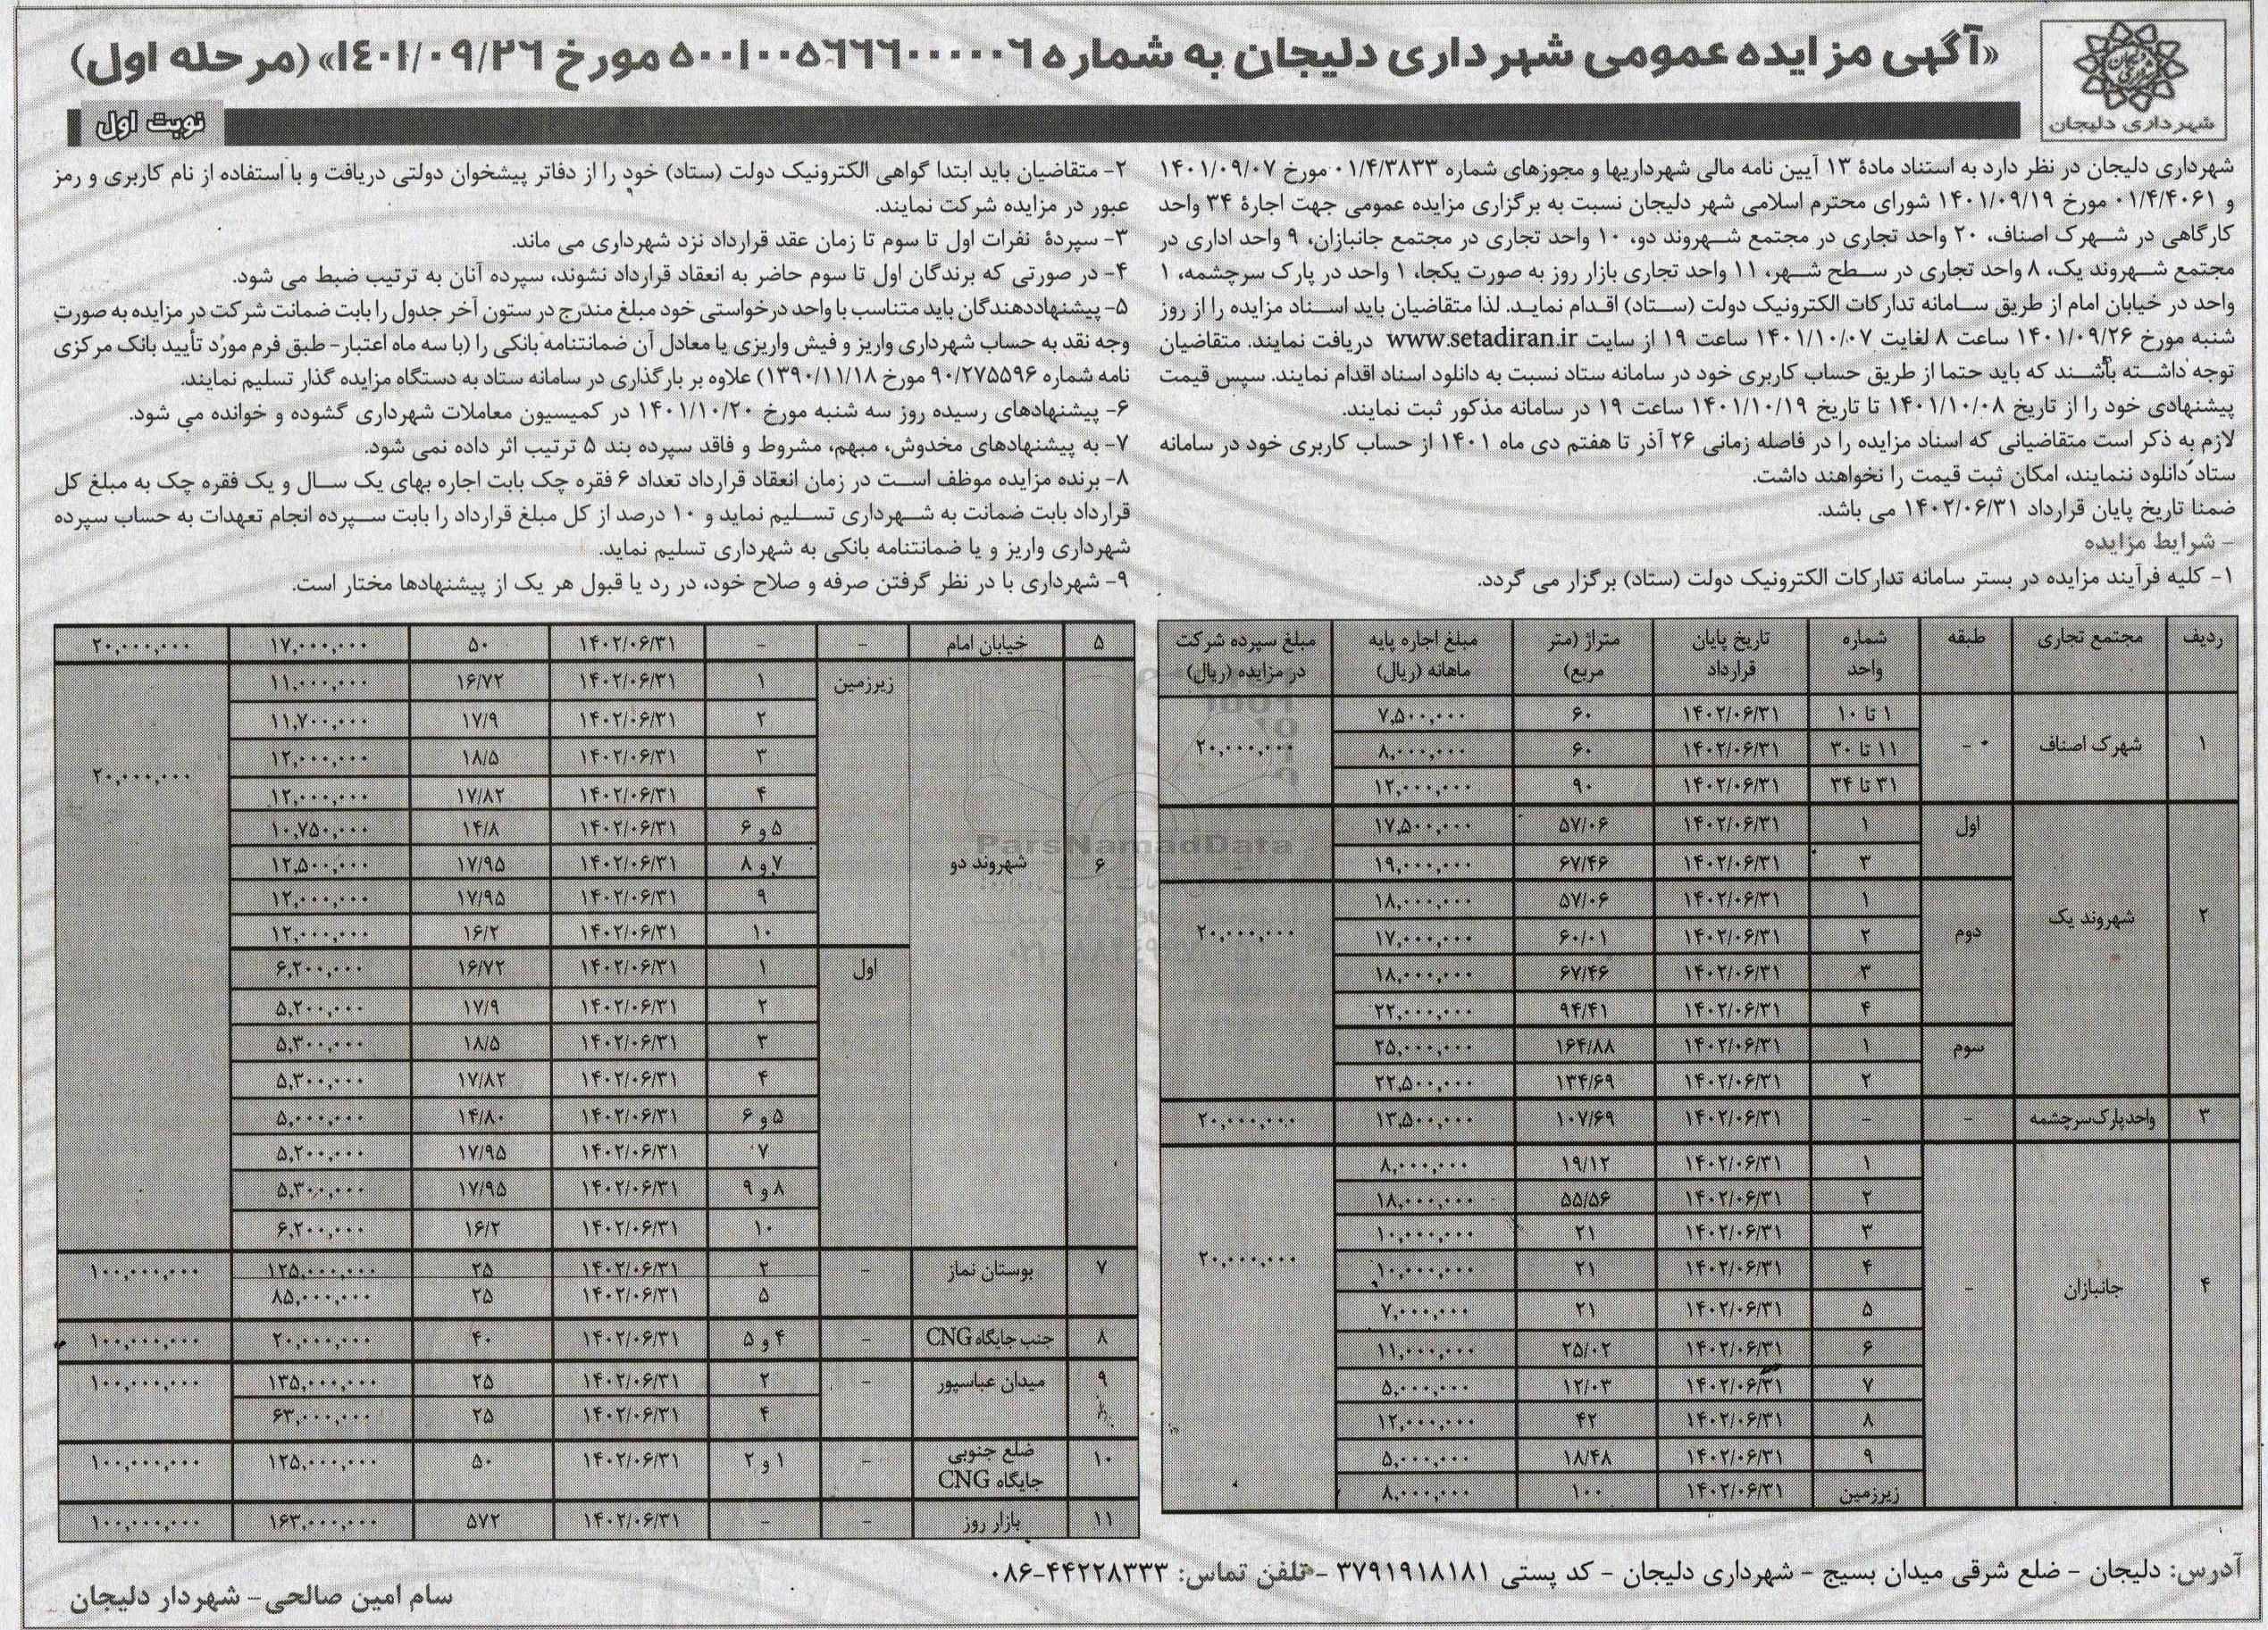 «آگهی مزایده عمومی شهرداری دلیجان به شماره ۵۰۰۱۰۰۵۶۶۶۰۰۰۰۰۶ مورخ ۱۴۰۱/۰۹/۲۶» (مرحله اول)
شهرداری دلیجان
نوبت اول
شهرداری دلیجان در نظر دارد به استناد مادهٔ ۱۳ آیین نامه مالی شهرداریها و مجوزهای شماره ۰۱/۴/۳۸۳۳ مورخ ۱۴۰۱/۰۹/۰۷
و ۰۱/۴/۴۰۶۱ مورخ ۱۴۰۱/۰۹/۱۹ شورای محترم اسلامی شهر دلیجان نسبت به برگزاری مزایده عمومی جهت اجارهٔ ۳۴ واحد
کارگاهی در شهرک اصناف، ۲۰ واحد تجاری در مجتمع شهروند دو، ۱۰ واحد تجاری در مجتمع جانبازان، ۹ واحد اداری در
مجتمع شهروند یک، ۸ واحد تجاری در سطح شهر، ۱۱ واحد تجاری بازار روز به صورت یکجا، ۱ واحد در پارک سرچشمه، ۱
واحد در خیابان امام از طریق سامانه تدارکات الکترونیک دولت (ستاد) اقدام نماید. لذا متقاضیان باید اسناد مزایده را از روز
شنبه مورخ ۱۴۰۱/۰۹/۲۶ ساعت ۸ لغایت ۱۴۰۱/۱۰/۰۷ ساعت ۱۹ از سایت www.setadiran.ir دریافت نمایند. متقاضیان
توجه داشته باشند که باید حتما از طریق حساب کاربری خود در سامانه ستاد نسبت به دانلود اسناد اقدام نمایند. سپس قیمت
پیشنهادی خود را از تاریخ ۱۴۰۱/۱۰/۰۸ تا تاریخ ۱۴۰۱/۱۰/۱۹ ساعت ۱۹ در سامانه مذکور ثبت نمایند.
لازم به ذکر است متقاضیانی که اسناد مزایده را در فاصله زمانی ۲۶ آذر تا هفتم دی ماه ۱۴۰۱ از حساب کاربری خود در سامانه
ستاد دانلود ننمایند، امکان ثبت قیمت را نخواهند داشت.
ضمنا تاریخ پایان قرارداد ۱۴۰۲/۰۶/۳۱ می باشد.
- شرایط مزایده
۱- کلیه فرآیند مزایده در بستر سامانه تدارکات الکترونیک دولت (ستاد) برگزار می گردد.
۲- متقاضیان باید ابتدا گواهی الکترونیک دولت (ستاد) خود را از دفاتر پیشخوان دولتی دریافت و با استفاده از نام کاربری و رمز
عبور در مزایده شرکت نمایند.
۳- سپردهٔ نفرات اول تا سوم تا زمان عقد قرارداد نزد شهرداری می ماند.
۴- در صورتی که برندگان اول تا سوم حاضر به انعقاد قرارداد نشوند، سپرده آنان به ترتیب ضبط می شود.
۵- پیشنهاددهندگان باید متناسب با واحد درخواستی خود مبلغ مندرج در ستون آخر جدول را بابت ضمانت شرکت در مزایده به صورت
وجه نقد به حساب شهرداری واریز و فیش واریزی یا معادل آن ضمانتنامه بانکی را (با سه ماه اعتبار- طبق فرم مورد تأیید بانک مرکزی
نامه شماره ۹۰/۲۷۵۵۹۶ مورخ ۱۳۹۰/۱۱/۱۸) علاوه بر بارگذاری در سامانه ستاد به دستگاه مزایده گذار تسلیم نمایند.
۶- پیشنهادهای رسیده روز سه شنبه مورخ ۱۴۰۱/۱۰/۲۰ در کمیسیون معاملات شهرداری گشوده و خوانده می شود.
۷- به پیشنهادهای مخدوش، مبهم، مشروط و فاقد سپرده بند ۵ ترتیب اثر داده نمی شود.
۸- برنده مزایده موظف است در زمان انعقاد قرارداد تعداد ۶ فقره چک بابت اجاره بهای یک سال و یک فقره چک به مبلغ کل
قرارداد بابت ضمانت به شهرداری تسلیم نماید و ۱۰ درصد از کل مبلغ قرارداد را بابت سپرده انجام تعهدات به حساب سپرده
شهرداری واریز و یا ضمانتنامه بانکی به شهرداری تسلیم نماید.
۹- شهرداری با در نظر گرفتن صرفه و صلاح خود، در رد یا قبول هر یک از پیشنهادها مختار است.
ردیف مجتمع تجاری طبقه شماره واحد تاریخ پایان قرارداد متراژ (متر مربع) مبلغ اجاره پایه ماهانه (ریال) مبلغ سپرده شرکت در مزایده (ریال)
۱ شهرک اصناف - ۱ تا ۱۰ ۱۴۰۲/۰۶/۳۱ ۶۰ ۷,۵۰۰,۰۰۰ ۲۰,۰۰۰,۰۰۰
۱۱ تا ۳۰ ۱۴۰۲/۰۶/۳۱ ۶۰ ۸,۰۰۰,۰۰۰
۳۱ تا ۳۴ ۱۴۰۲/۰۶/۳۱ ۹۰ ۱۲,۰۰۰,۰۰۰
۲ شهروند یک اول ۱ ۱۴۰۲/۰۶/۳۱ ۵۷/۰۶ ۱۷,۵۰۰,۰۰۰
۳ ۱۴۰۲/۰۶/۳۱ ۶۷/۴۶ ۱۹,۰۰۰,۰۰۰
دوم ۱ ۱۴۰۲/۰۶/۳۱ ۵۷/۰۶ ۱۸,۰۰۰,۰۰۰ ۲۰,۰۰۰,۰۰۰
۲ ۱۴۰۲/۰۶/۳۱ ۶۰/۰۱ ۱۷,۰۰۰,۰۰۰
۳ ۱۴۰۲/۰۶/۳۱ ۶۷/۴۶ ۱۸,۰۰۰,۰۰۰
۴ ۱۴۰۲/۰۶/۳۱ ۹۴/۴۱ ۲۲,۰۰۰,۰۰۰
سوم ۱ ۱۴۰۲/۰۶/۳۱ ۱۶۴/۸۸ ۲۵,۰۰۰,۰۰۰
۲ ۱۴۰۲/۰۶/۳۱ ۱۳۴/۶۹ ۲۲,۵۰۰,۰۰۰
۳ واحد پارک سرچشمه - - ۱۴۰۲/۰۶/۳۱ ۱۰۷/۶۹ ۱۳,۵۰۰,۰۰۰ ۲۰,۰۰۰,۰۰۰
۴ جانبازان - ۱ ۱۴۰۲/۰۶/۳۱ ۱۹/۱۲ ۸,۰۰۰,۰۰۰ ۲۰,۰۰۰,۰۰۰
۲ ۱۴۰۲/۰۶/۳۱ ۵۵/۵۶ ۱۸,۰۰۰,۰۰۰
۳ ۱۴۰۲/۰۶/۳۱ ۲۱ ۱۰,۰۰۰,۰۰۰
۴ ۱۴۰۲/۰۶/۳۱ ۲۱ ۱۰,۰۰۰,۰۰۰
۵ ۱۴۰۲/۰۶/۳۱ ۲۱ ۷,۰۰۰,۰۰۰
۶ ۱۴۰۲/۰۶/۳۱ ۲۵/۰۲ ۱۱,۰۰۰,۰۰۰
۷ ۱۴۰۲/۰۶/۳۱ ۱۲/۰۳ ۵,۰۰۰,۰۰۰
۸ ۱۴۰۲/۰۶/۳۱ ۴۲ ۱۲,۰۰۰,۰۰۰
۹ ۱۴۰۲/۰۶/۳۱ ۱۸/۴۸ ۵,۰۰۰,۰۰۰
زیرزمین ۱۴۰۲/۰۶/۳۱ ۱۰۰ ۸,۰۰۰,۰۰۰
۵ خیابان امام - - ۱۴۰۲/۰۶/۳۱ ۵۰ ۱۷,۰۰۰,۰۰۰ ۲۰,۰۰۰,۰۰۰
۶ شهروند دو زیرزمین ۱ ۱۴۰۲/۰۶/۳۱ ۱۶/۷۲ ۱۱,۰۰۰,۰۰۰ ۲۰,۰۰۰,۰۰۰
۲ ۱۴۰۲/۰۶/۳۱ ۱۷/۹ ۱۱,۷۰۰,۰۰۰
۳ ۱۴۰۲/۰۶/۳۱ ۱۸/۵ ۱۲,۰۰۰,۰۰۰
۴ ۱۴۰۲/۰۶/۳۱ ۱۷/۸۲ ۱۲,۰۰۰,۰۰۰
۵ و ۶ ۱۴۰۲/۰۶/۳۱ ۱۴/۸ ۱۰,۷۵۰,۰۰۰
۷ و ۸ ۱۴۰۲/۰۶/۳۱ ۱۷/۹۵ ۱۲,۵۰۰,۰۰۰
۹ ۱۴۰۲/۰۶/۳۱ ۱۷/۹۵ ۱۲,۰۰۰,۰۰۰
۱۰ ۱۴۰۲/۰۶/۳۱ ۱۶/۲ ۱۲,۰۰۰,۰۰۰
اول ۱ ۱۴۰۲/۰۶/۳۱ ۱۶/۷۲ ۶,۲۰۰,۰۰۰
۲ ۱۴۰۲/۰۶/۳۱ ۱۷/۹ ۵,۲۰۰,۰۰۰
۳ ۱۴۰۲/۰۶/۳۱ ۱۸/۵ ۵,۳۰۰,۰۰۰
۴ ۱۴۰۲/۰۶/۳۱ ۱۷/۸۲ ۵,۳۰۰,۰۰۰
۵ و ۶ ۱۴۰۲/۰۶/۳۱ ۱۴/۸۰ ۵,۰۰۰,۰۰۰
۷ ۱۴۰۲/۰۶/۳۱ ۱۷/۹۵ ۵,۲۰۰,۰۰۰
۸ و ۹ ۱۴۰۲/۰۶/۳۱ ۱۷/۹۵ ۵,۳۰۰,۰۰۰
۱۰ ۱۴۰۲/۰۶/۳۱ ۱۶/۲ ۶,۲۰۰,۰۰۰
۷ بوستان نماز - ۲ ۱۴۰۲/۰۶/۳۱ ۲۵ ۱۲۵,۰۰۰,۰۰۰ ۱۰۰,۰۰۰,۰۰۰
۵ ۱۴۰۲/۰۶/۳۱ ۲۵ ۸۵,۰۰۰,۰۰۰
۸ جنب جایگاه CNG - ۴ و ۵ ۱۴۰۲/۰۶/۳۱ ۴۰ ۲۰,۰۰۰,۰۰۰ ۱۰۰,۰۰۰,۰۰۰
۹ میدان عباسپور - ۲ ۱۴۰۲/۰۶/۳۱ ۲۵ ۱۳۵,۰۰۰,۰۰۰ ۱۰۰,۰۰۰,۰۰۰
۴ ۱۴۰۲/۰۶/۳۱ ۲۵ ۶۳,۰۰۰,۰۰۰
۱۰ ضلع جنوبی جایگاه CNG - ۱ و ۲ ۱۴۰۲/۰۶/۳۱ ۵۰ ۱۲۵,۰۰۰,۰۰۰ ۱۰۰,۰۰۰,۰۰۰
۱۱ بازار روز - - ۱۴۰۲/۰۶/۳۱ ۵۷۲ ۱۶۳,۰۰۰,۰۰۰ ۱۰۰,۰۰۰,۰۰۰
ParsNamadData
آدرس: دلیجان - ضلع شرقی میدان بسیج - شهرداری دلیجان - کد پستی ۳۷۹۱۹۱۸۱۸۱ - تلفن تماس: ۰۸۶-۴۴۲۲۸۳۳۳
سام امین صالحی- شهردار دلیجان